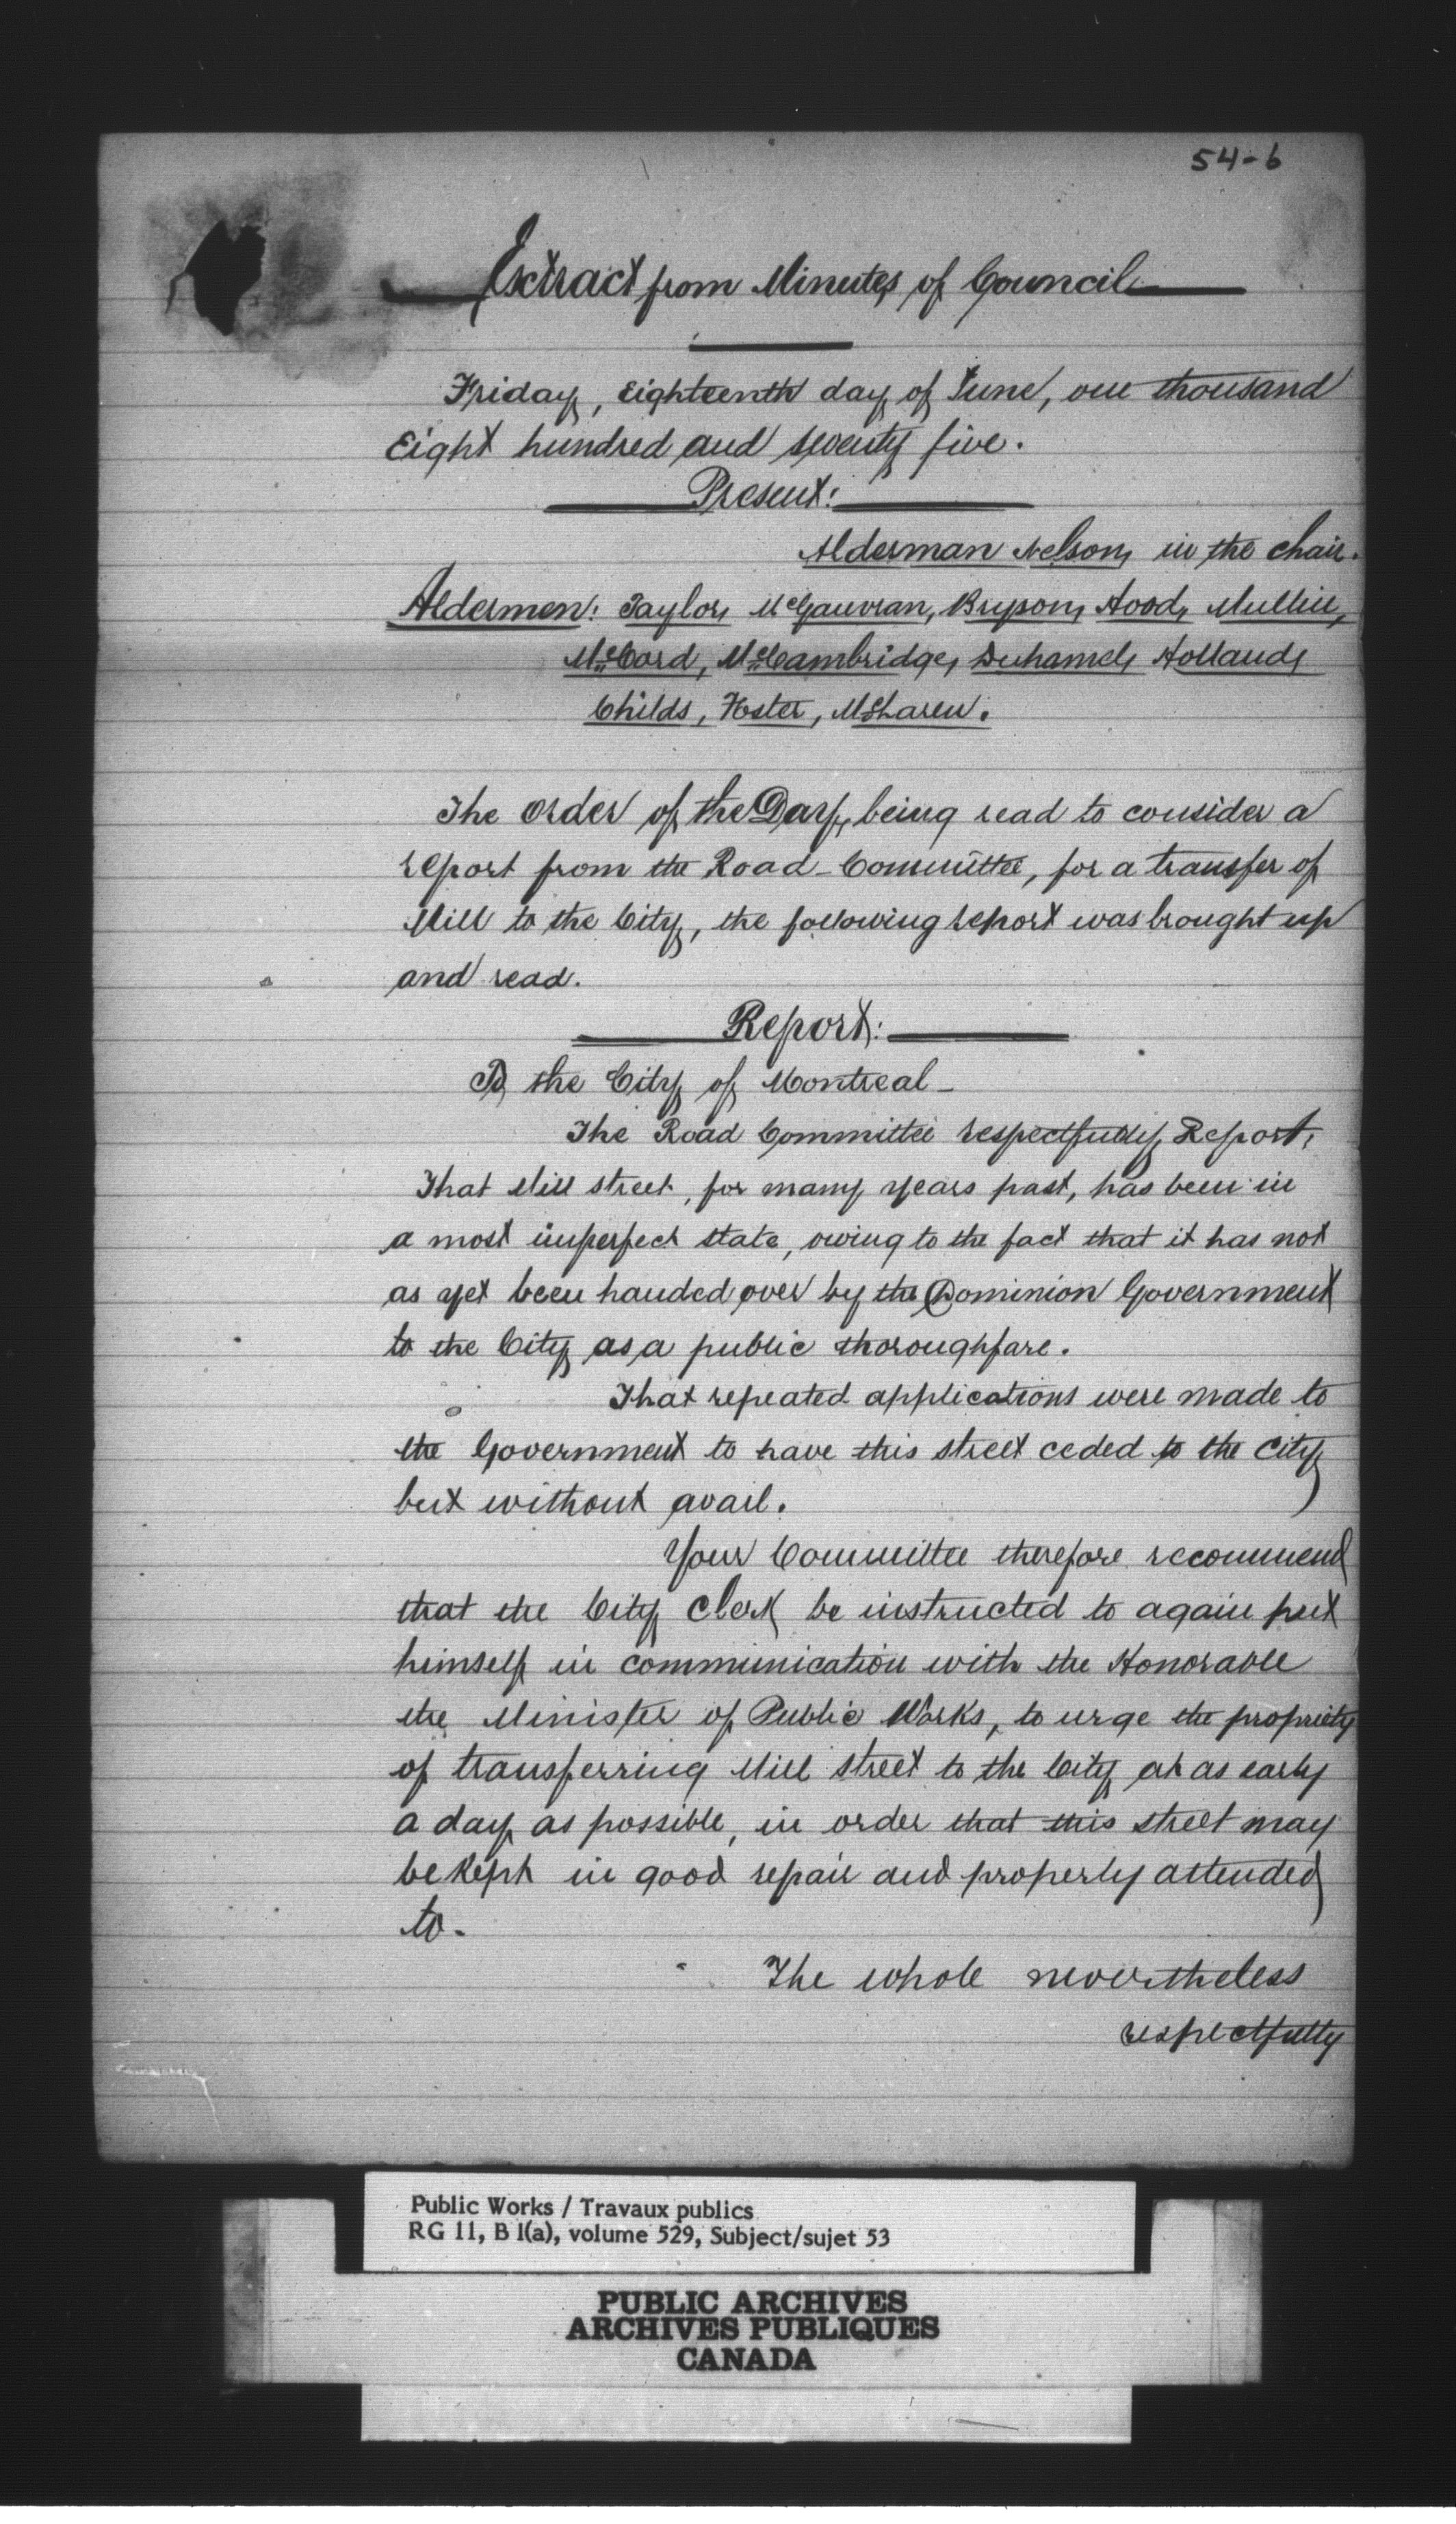 54-6
Extract from Minutes of Council
Friday, Eighteenth day of June, one thousand
Eight hundred and seventy five.
Present:
Alderman Nelson, in the chair.
Aldermen: Taylor, McGauvran, Bryson, Hood, Mullin,
McCord, McCambridge, Duhamel, Holland,
Childs, Foster, McSharen.
The Order of the Day, being read to consider a
report from the Road Committee, for a transfer of
Mill to the City, the following report was brought up
and read.
Report:
To the City of Montreal-
The Road Committee respectfully Report,
That Mill street, for many years past, has been in
a most imperfect state, owing to the fact that it has not
as yet been handed over by the Dominion Government
to the City as a public thoroughfare.
That repeated applications were made to
the Government to have this street ceded to the City
but without avail.
Your Committee therefore recommend
that the City Clerk be instructed to again put
himself in communication with the Honorable
the Minister of Public Works, to urge the propriety
of transferring Mill street to the City at as early
a day as possible, in order that this street may
be kept in good repair and properly attended
to.
The whole nevertheless
respectfully
Public Works / Travaux publics
RG 11, B 1(a), volume 529, Subject/sujet 53
PUBLIC ARCHIVES
ARCHIVES PUBLIQUES
CANADA